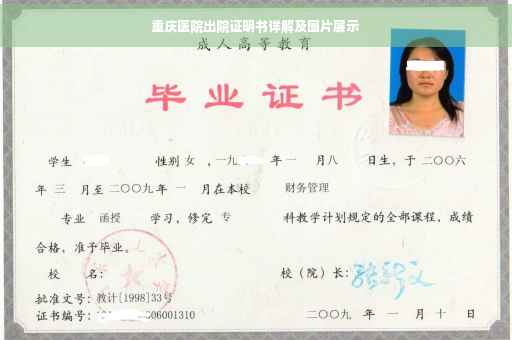 重庆医院出院证明书详解及图片展示
成人高等教育
毕业证书
学生 性别 女 ，一九 年 一 月八 日生，于 二〇〇六
年 三 月至 二〇〇九 年 一 月在本校 财务管理
专业 函授 学习，修完 专 科教学计划规定的全部课程，成绩
合格，准予毕业。
校 名： 校（院）长：
批准文号：教计[1998]33号
证书编号： 06001310 二〇〇九 年 一 月 十 日